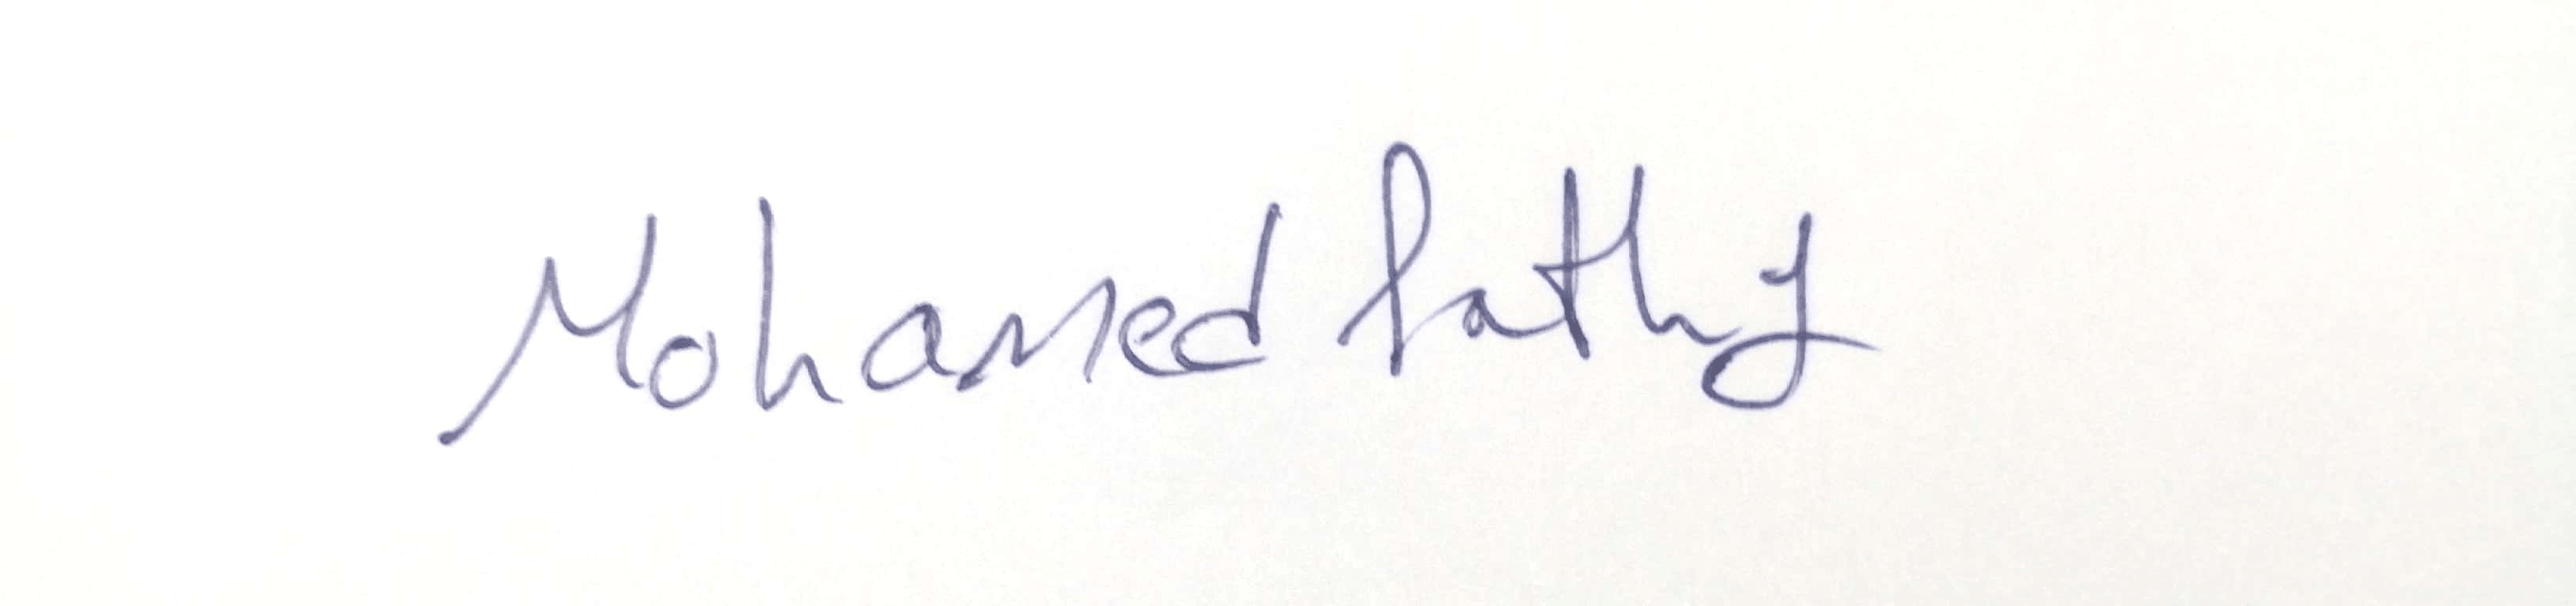 Mohamed fathy